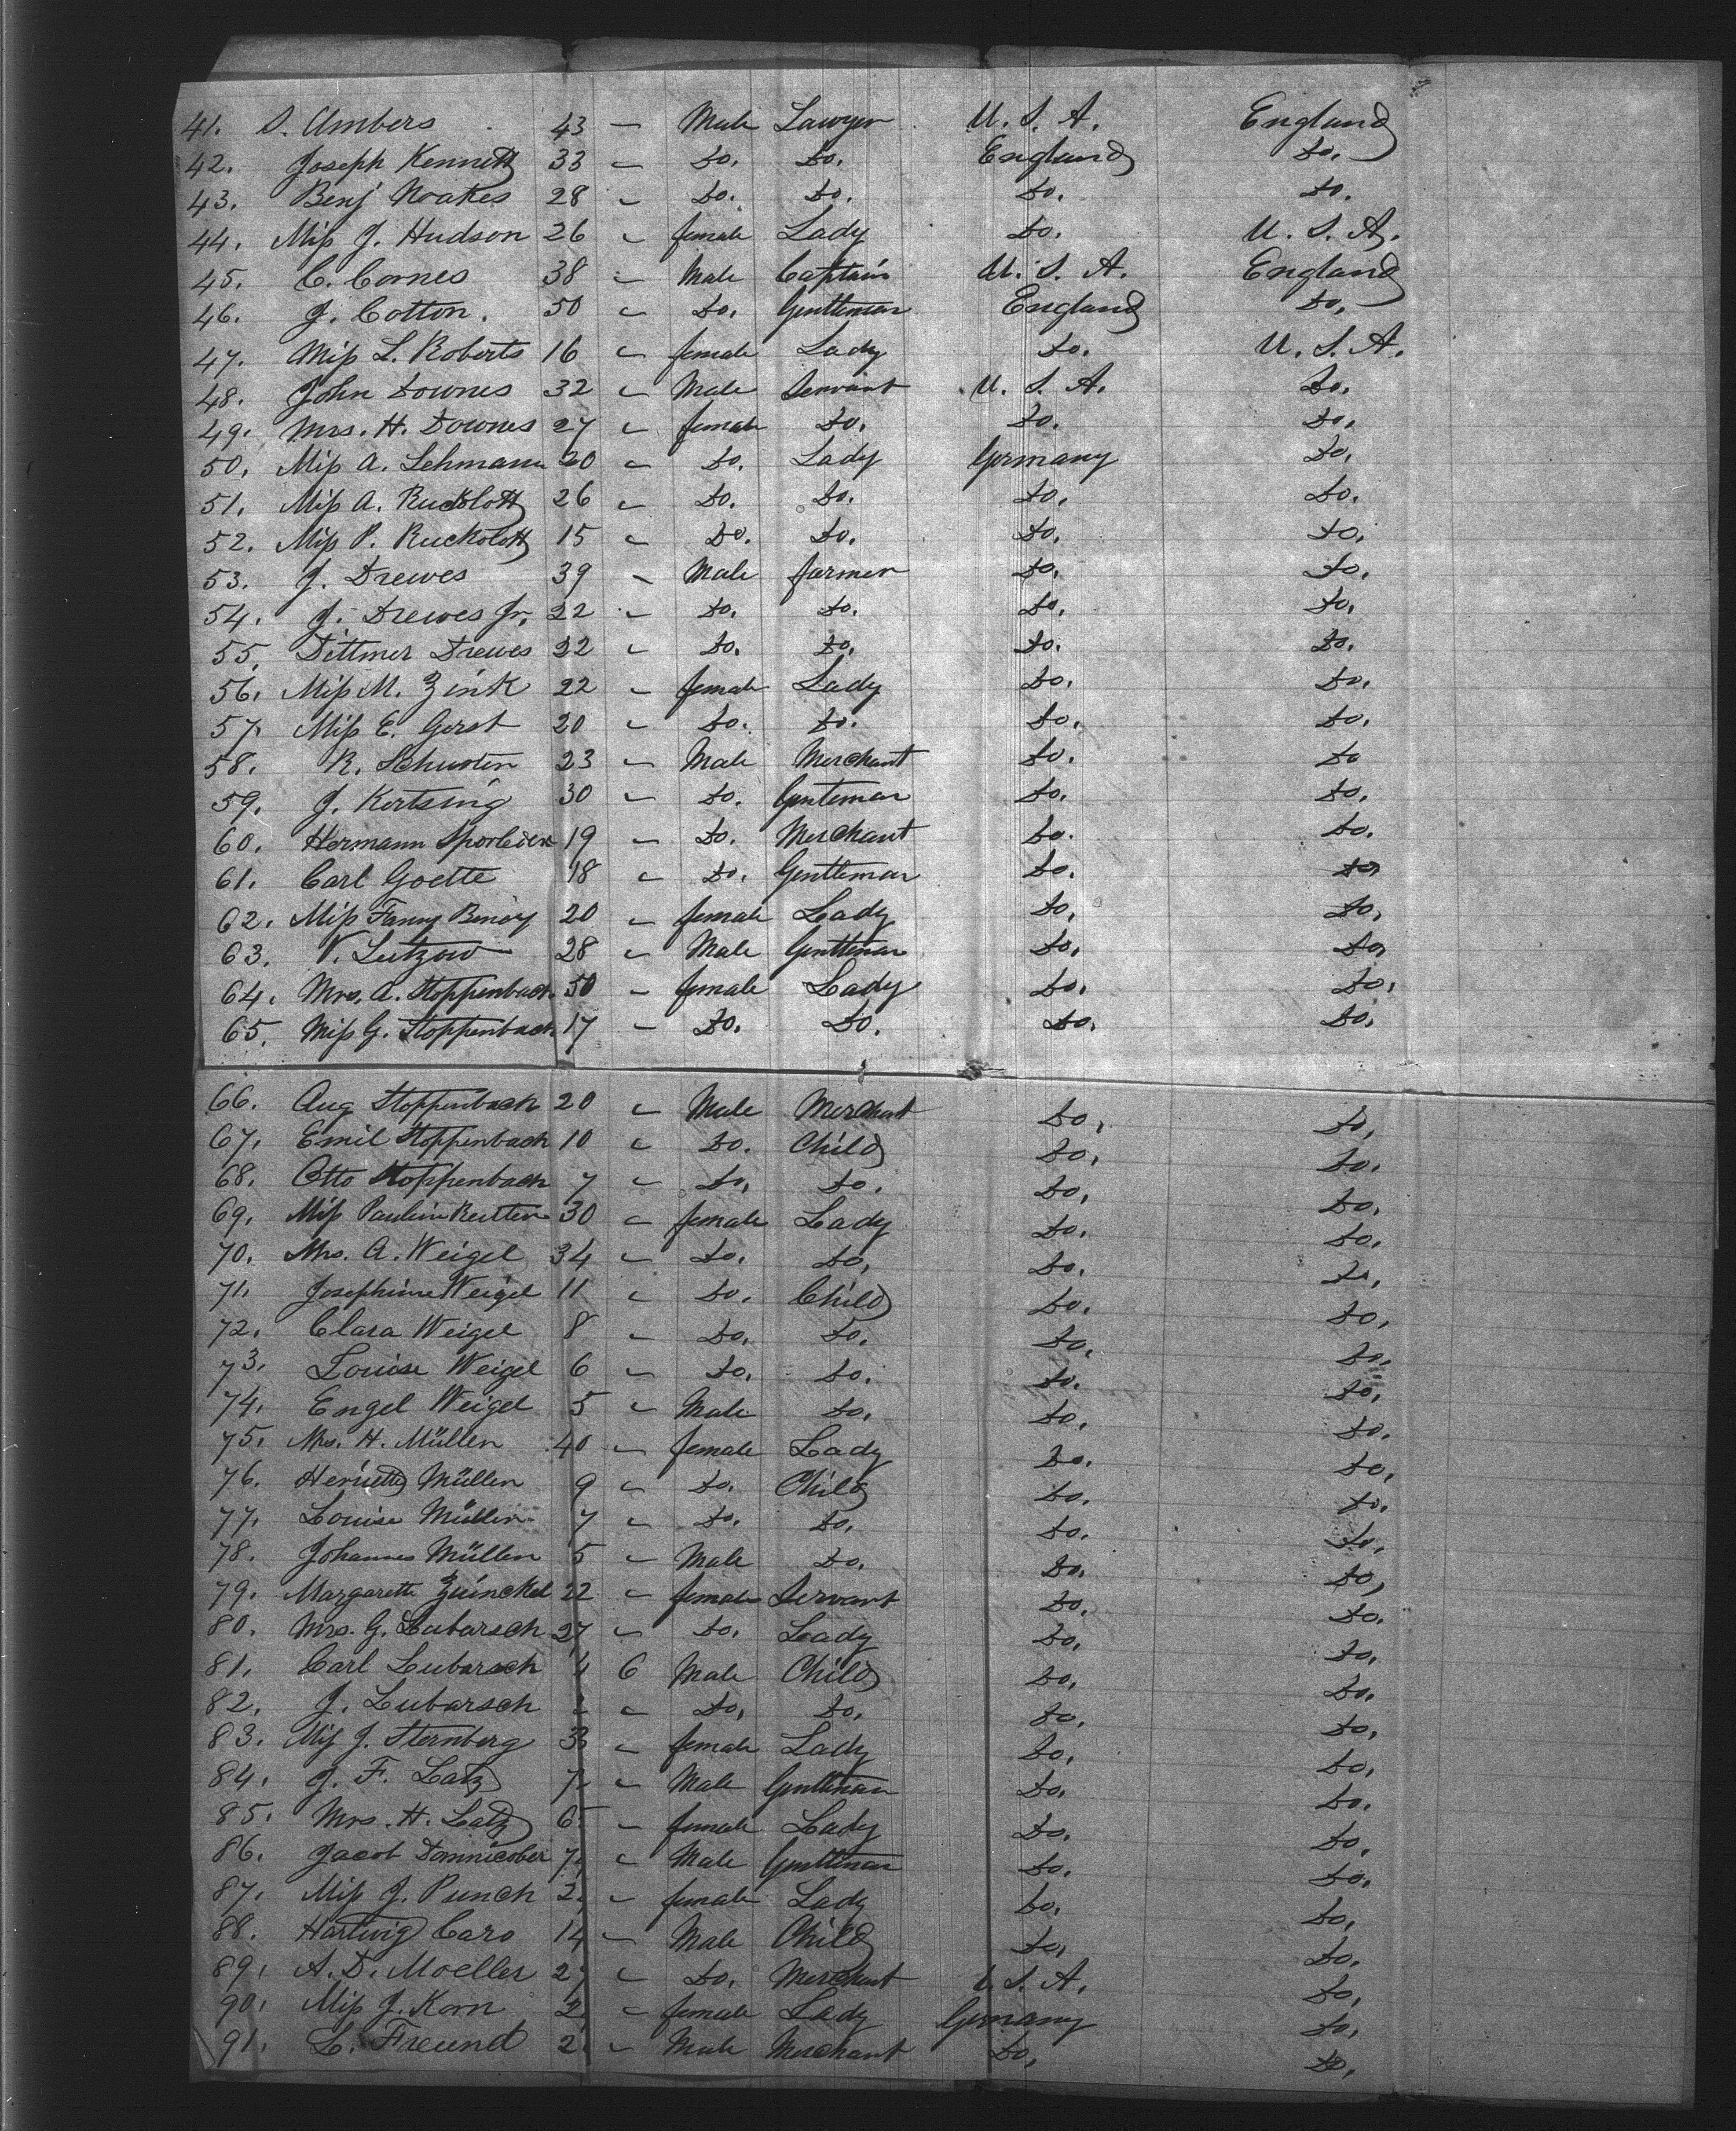 41. S. Umbers 43 – Male Lawyer U. S. A. England
42. Joseph Kennett 33 – Do. Do. England Do.
43. Benj Noakes 28 – Do. Do. Do. Do.
44. Miss J. Hudson 26 – female Lady Do. U. S. A.
45. C. Cornes 38 – Male Captain U. S. A. England
46. J. Cotton. 50 – Do. Gentleman England Do.
47. Miss L. Roberts 16 – female Lady Do. U. S. A.
48. John Downes 32 – Male Servant U. S. A. Do.
49. Mrs. H. Downes 27 – female Do. Do. Do.
50. Miss A. Lehmann 20 – Do. Lady Germany Do.
51. Miss A. 26 – Do. Do. Do. Do.
52. Miss P. Ruckolott 15 – Do. Do. Do. Do.
53. J. Drewes 39 – Male farmer Do. Do.
54. J. Drewes Jr. 22 – Do. Do. Do. Do.
55. Dittmer Drewes 22 – Do. Do. Do. Do.
56. Miss M. Zink 22 – female Lady Do. Do.
57. Miss E. Gerst 20 – Do. Do. Do. Do.
58. R. Schuster 23 – Male Merchant Do. Do
59. J. Kertsing 30 – Do. Genteman Do. Do.
60. Hermann 19 – Do. Merchant Do. Do.
61. Carl Goette 18 – Do. Gentleman Do. Do
62. Miss Fanny 20 – female Lady Do. Do.
63. V. Lutzow 28 – Male Gentleman Do. Do
64. Mrs. A. Stoppenbach 50 – female Lady Do. Do.
65. Miss G. Stoppenbach 17 – Do. Do. Do. Do.
66. Aug Stoppenbach 20 – Male Merchant Do. Do.
67. Emil Stoppenbach 10 – Do. Child Do. Do.
68. Otto Stoppenbach 7 – Do. Do. Do. Do.
69. Miss Paulin Reuter 30 – female Lady Do. Do.
70. Mrs. A. Weigel 34 – Do. Do. Do. Do.
71. Josephine Weigel 11 – Do. Child Do. Do.
72. Clara Weigel 8 – Do. Do. Do. Do.
73. Louise Weigel 6 – Do. Do. Do. Do.
74. Engel Weigel 5 – Male Do. Do. Do.
75. Mrs. H. Müller 40 – female Lady Do. Do.
76. Müller 9 – Do. Child Do. Do.
77. Louise Müller 7 – Do. Do. Do. Do.
78. Johannes Müller 5 – Male Do. Do. Do.
79. Margarette 22 – female Servant Do. Do.
80. Mrs. G. Lubarsch 27 – Do. Lady Do. Do.
81. Carl Lubarsch 4 6 Male Child Do. Do.
82. J. Lubarsch – Do. Do. Do. Do.
83. Miss J. Sternberg 3 – female Lady Do. Do.
84. J. F. Latz 7 – Male Gentleman Do. Do.
85. Mrs. H. Latz 6 – female Lady Do. Do.
86. Jacob 7 – Male Gentleman Do. Do.
87. Miss J. Punch 2 – female Lady Do. Do.
88. Hartwig Caro 14 – Male Child Do. Do.
89. A. D. Moeller 27 – Do. Merchant U. S. A. Do.
90. Miss J. Korn 2 – female Lady Germany Do.
91. L. Freund 2 – Male Merchant Do. Do.